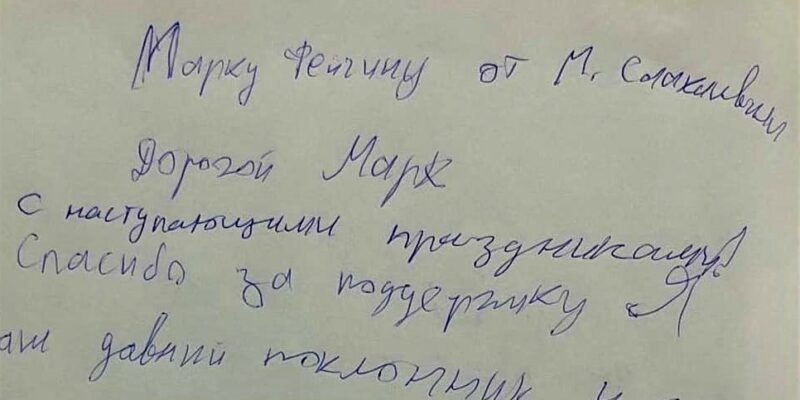 Марку Фейгину от М.
Дорогой Марк
с наступающими праздниками!
Спасибо за поддержку Я
аш давний поклонник и